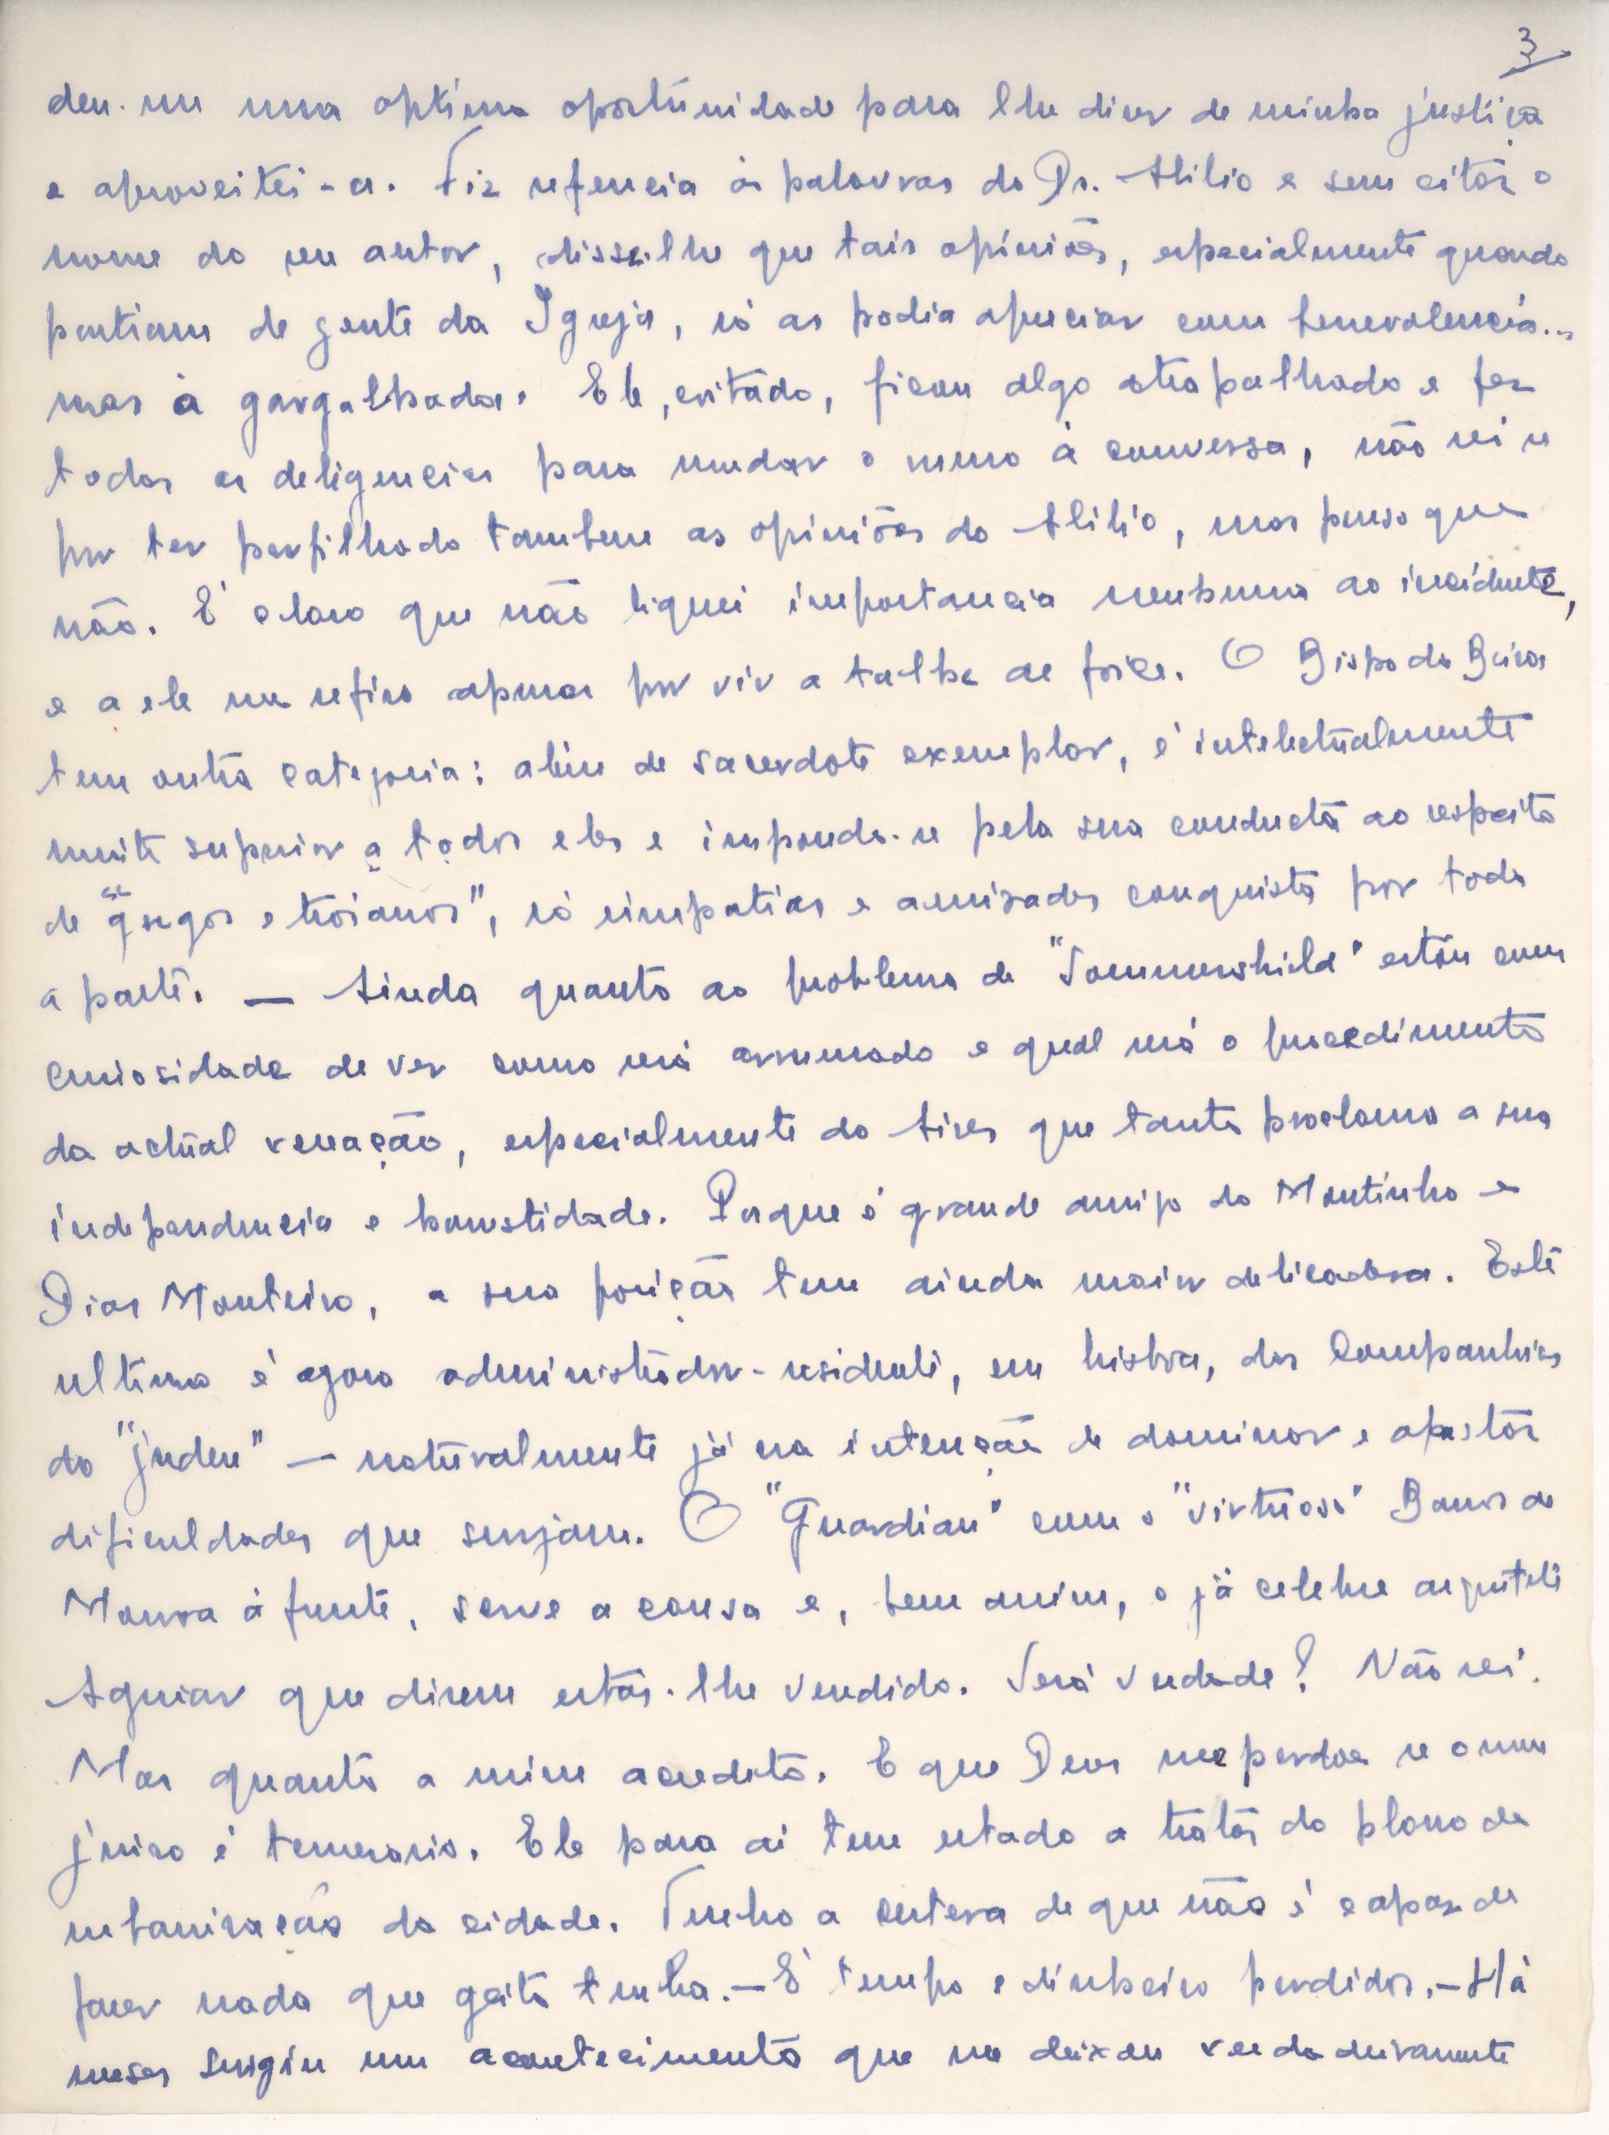 3
deu-me uma optima oportunidade para lhe dizer de minha justiça
e aproveitei-a. Fiz referencia às palavras do Dr. Atilio e sem citar o
nome do seu autor, disse-lhe que tais opiniões, especialmente quando
partiam de gente da Igreja, só as podia apreciar com benevolencia...
mas à gargalhada. Ele, coitado, ficou algo atrapalhado e fez
todas as deligencias para mudar o rumo à conversa, não sei se
por ter perfilhado tambem as opiniões do Atilio, mas penso que
não. É claro que não liguei importancia nenhuma ao incidente,
e a ele me refiro apenas por vir a talhe de foice. O Bispo da Beira
tem outra categoria: alem de sacerdote exemplar, é intelectualmente
muito superior a todos eles e impondo-se pela sua conducta ao respeito
de "gregos e troianos", só simpatias e amizades conquista por toda
a parte. — Ainda quanto ao problema de "Sommershield" estou com
curiosidade de ver como será arrumado e qual será o procedimento
da actual vereação, especialmente do Aires que tanto proclama a sua
independencia e honestidade. Porque é grande amigo do Moutinho e
Dias Monteiro, a sua posição tem ainda maior delicadesa. Este
ultimo é agora administrador-residente, em Lisboa, das Companhias
do "judeu" — naturalmente já na intenção de dominar e afastar
dificuldades que surjam. O "Guardian" com o "virtuoso" Barros de
Moura à frente, serve a causa e, bem assim, o já celebre arquitecto
Aguiar que dizem estar-lhe vendido. Será verdade? Não sei.
Mas quanto a mim acredito. E que Deus me perdoe se o meu
juizo é temerario. Ele para ai tem estado a tratar do plano de
urbanização da cidade. Tenho a certeza de que não é capaz de
fazer nada que geito tenha. — É tempo e dinheiro perdidos. — Há
meses surgiu um acontecimento que me deixou verdadeiramente